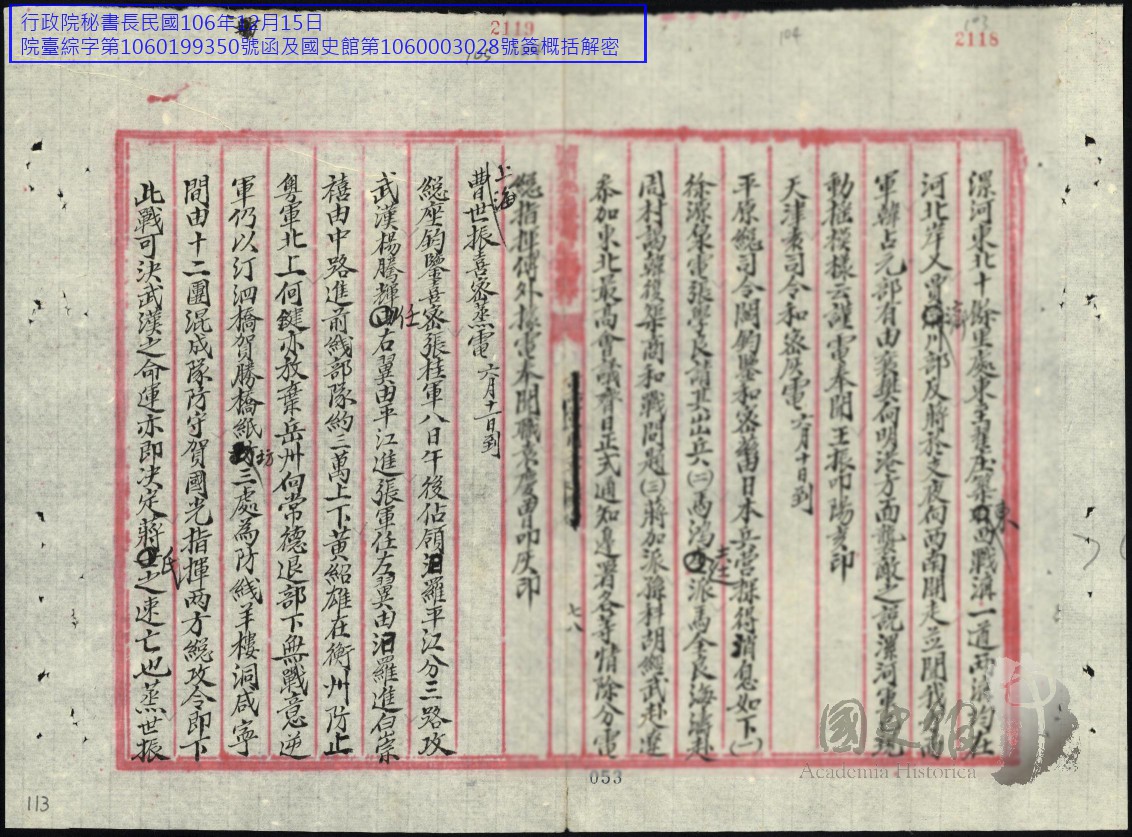 行政院秘書長民國106年12月15日
院臺綜字第1060199350號函及國史館第1060003028號簽概括解密
2119
2118
103
104
105
漯河東北十餘里處東西戰溝一道兩溝約在
河北岸人實川部及蔣於支夜向西南開走並聞我
軍韓占元部有由襄與向明港方面襲敵之説漯河軍現
動極模樣云謹電奉聞王振叩陽亥印
天津袁司令和密灰電六月十日到
平原總司令閻鈞鑒和密舊日本兵營探得消息如下(一)
徐源泉電張學良請其出兵(二)西鴻逵派馬全良海濤赴
周村謁韓復榘商和戰問題(三)蔣加派縣科胡繩武赴遼
參加東北最高會議齊日正式通知邊署各等情除分電
總指揮傅外據電奉聞職袁慶曾叩灰印
七八
上海曹世振喜密蒸電六月十一日到
總座鈞鑒喜密張桂軍八日午後佔領汨羅平江分三路攻
武漢楊騰輝任右翼由平江進張軍任左翼由汨羅進白崇
禧由中路進前綫部隊約三萬上下黄紹雄在衡州防止
粤軍北上何鍵亦放棄岳州向常德退部下無戰意逆
軍仍以汀泗橋賀勝橋紙坊三處為防綫羊樓洞咸寧
間由十二團混成隊防守賀國光指揮两方總攻令即下
此戰可決武漢之命運亦即決定蔣氏之速亡也蒸世振
053
113
國史館
Academia Historica